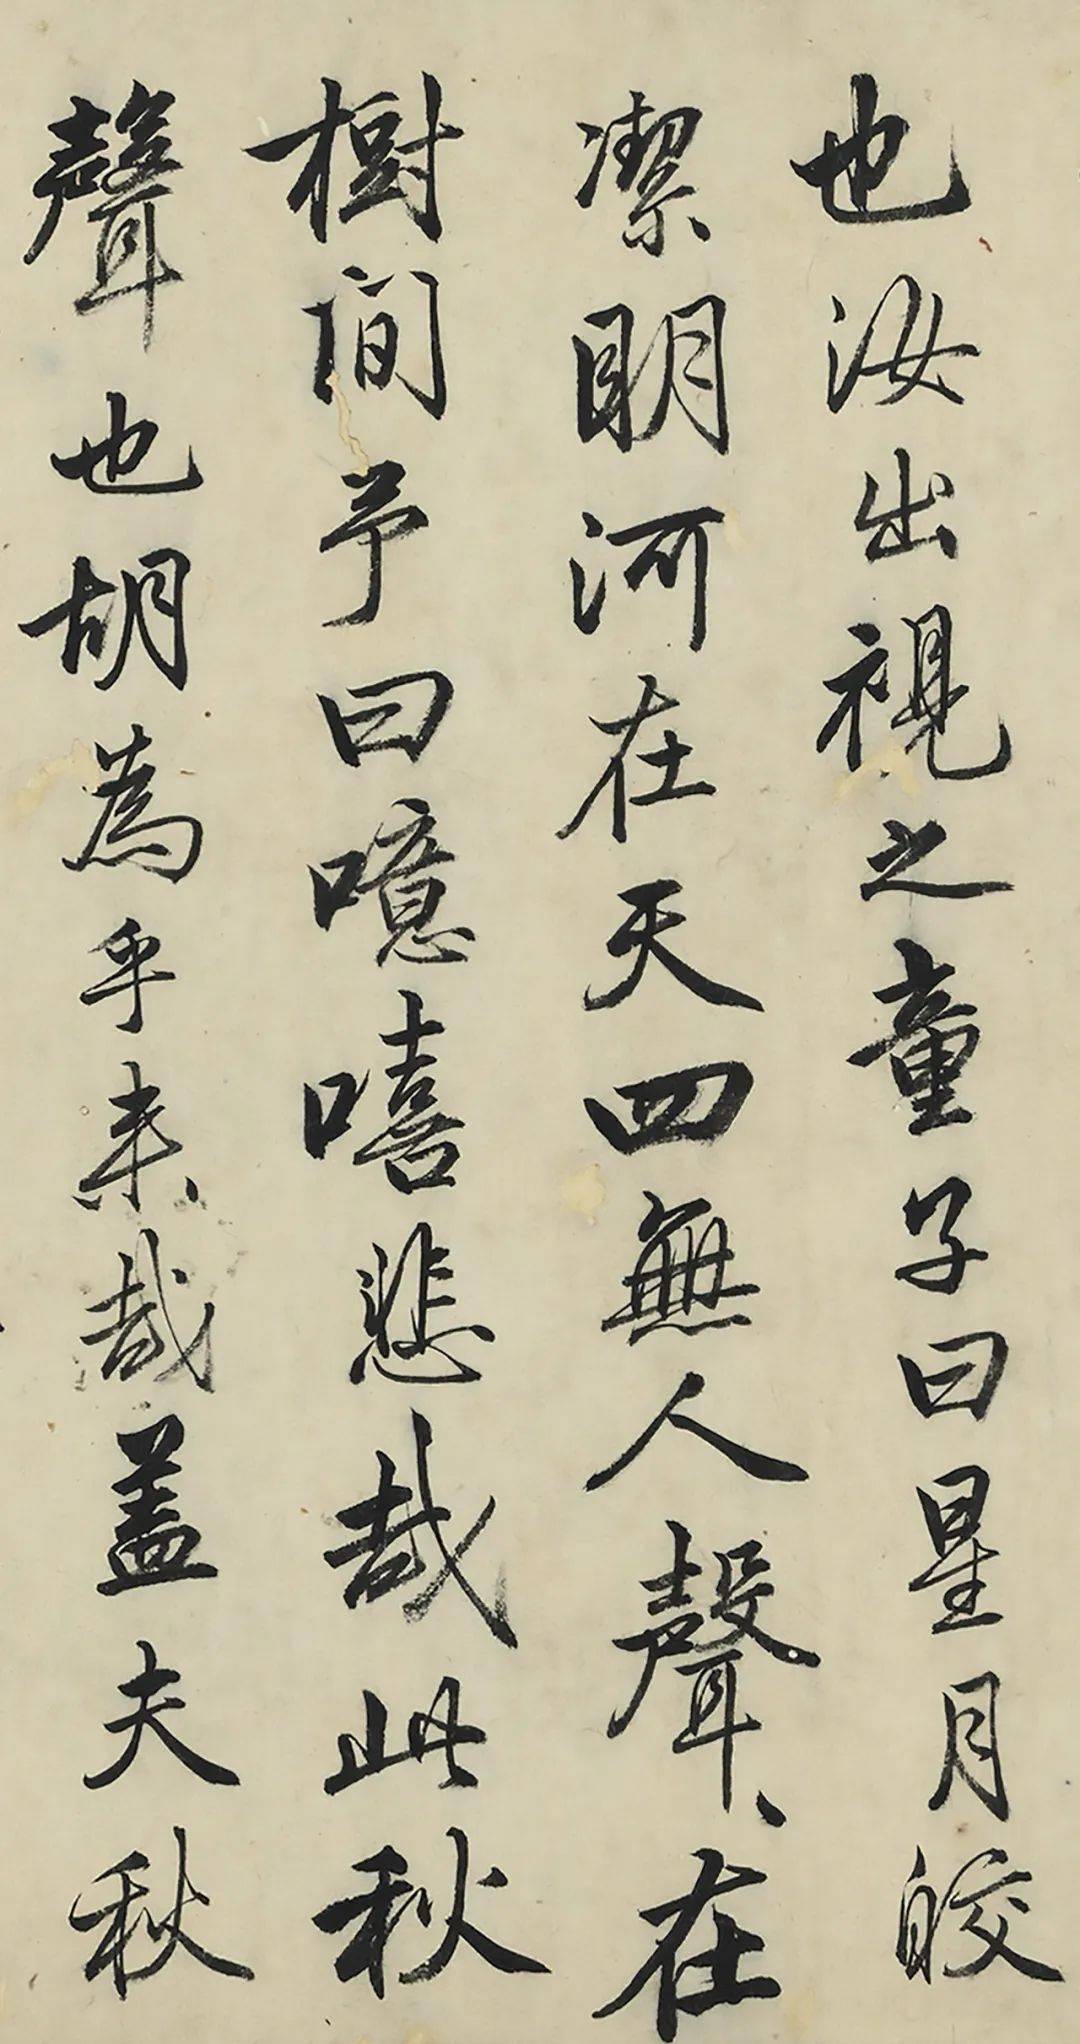 也汝出視之童子曰星月皎
潔明河在天四無人聲、在
樹間予曰噫嘻悲哉此秋
聲也胡為乎来哉蓋夫秋